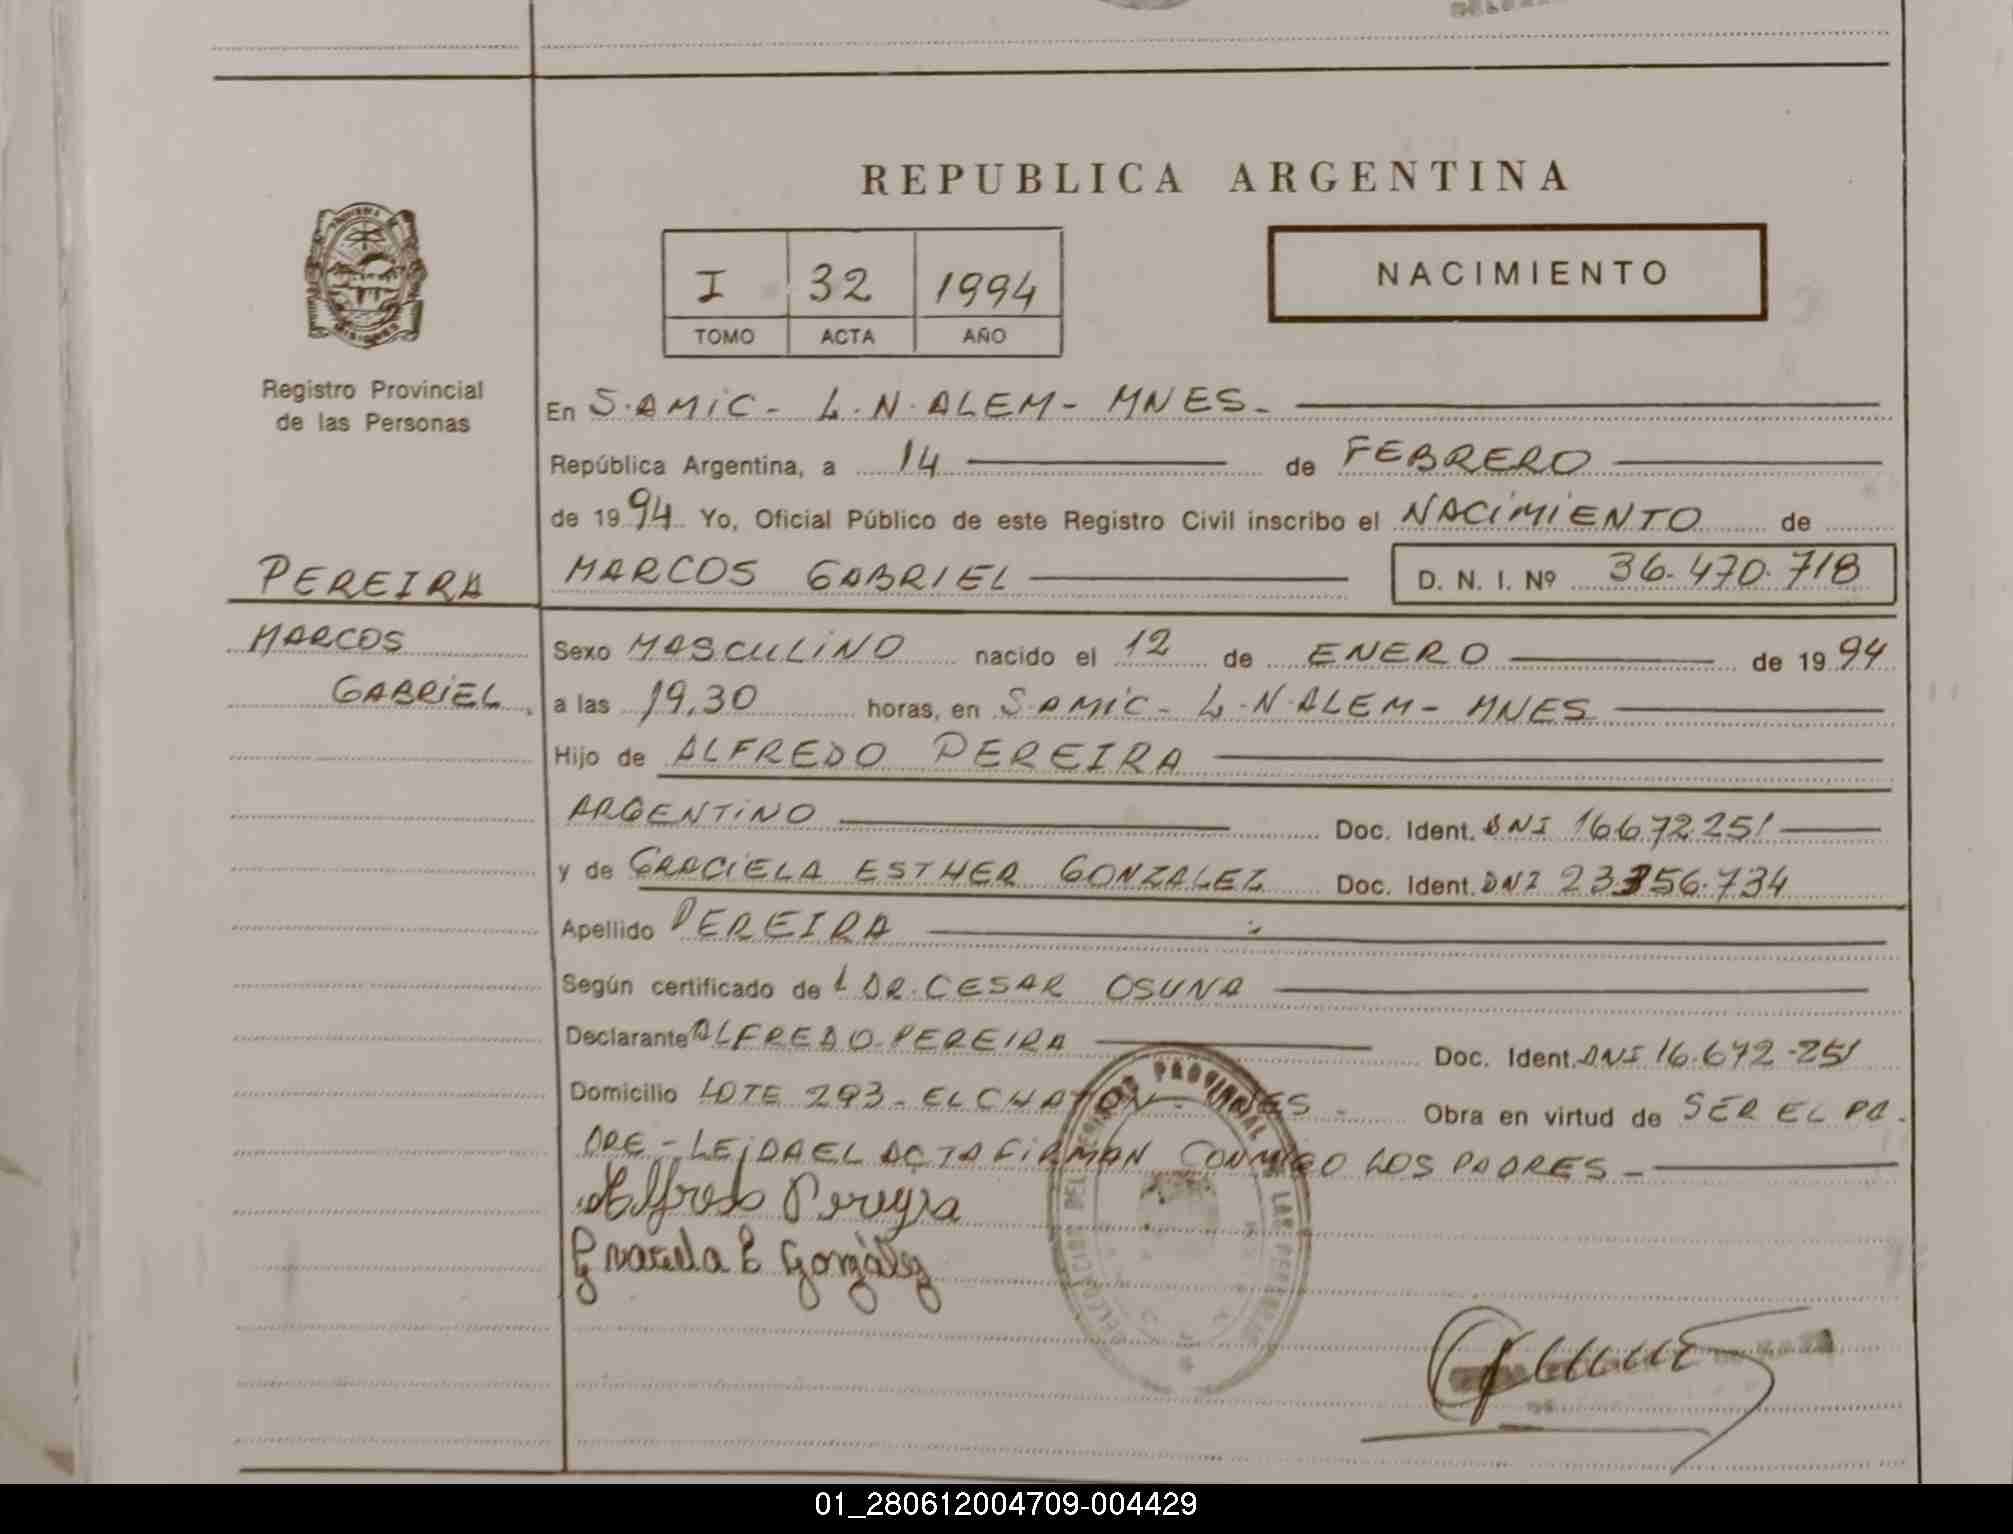 REPUBLICA ARGENTINA
I 32 1994
TOMO ACTA AÑO
NACIMIENTO
Registro Provincial
de las Personas
En S.AMIC - L.N.ALEM - MNES.
República Argentina, a 14 de FEBRERO
de 1994 Yo, Oficial Público de este Registro Civil inscribo el NACIMIENTO de
PEREIRA MARCOS GABRIEL D. N. I. Nº 36.470.718
MARCOS Sexo MASCULINO nacido el 12 de ENERO de 1994
GABRIEL. a las 19,30 horas, en S.AMIC - L.N.ALEM - MNES
Hijo de ALFREDO PEREIRA
ARGENTINO Doc. Ident. DNI 16.672.251
y de GRACIELA ESTHER GONZALEZ Doc. Ident. DNI 23.356.734
Apellido PEREIRA
Según certificado de L DR. CESAR OSUNA
Declarante ALFREDO PEREIRA Doc. Ident. DNI 16.672.251
Domicilio LOTE 293 - EL Obra en virtud de SER EL PA
DRE - LEIDA EL ACTA FIRMAN CONMIGO LOS PADRES -
Alfredo Pereyra
Graciela E González
PROVINCIAL
01_280612004709-004429